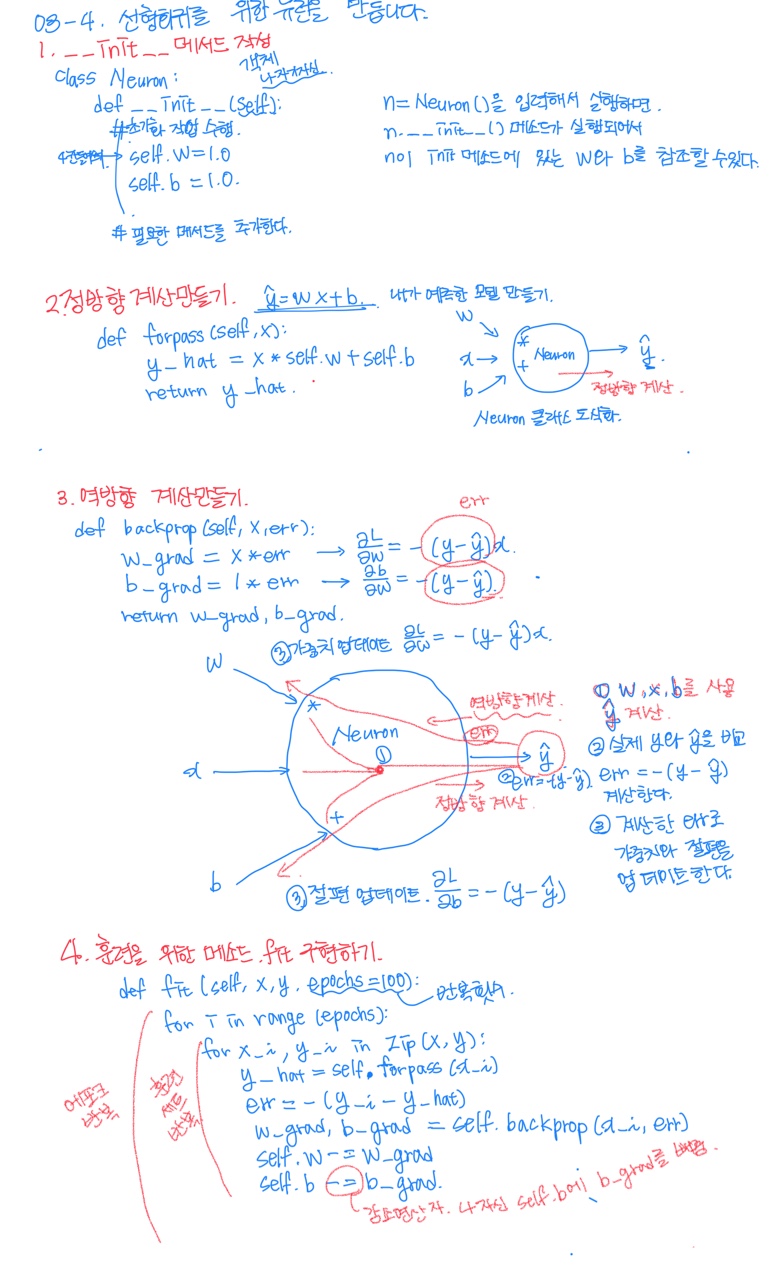 03-4. 선형회귀를 위한 뉴런을 만듭니다.
1. __init__ 메서드 작성
class Neuron:
객체
나자신.
def __init__(self):
#초기화 작업 수행.
self.w=1.0
self.b=1.0.
# 필요한 메서드를 추가한다.
n=Neuron()을 입력해서 실행하면.
n.__init__() 메소드가 실행되어서
n이 init 메소드에 있는 w와 b를 참조할 수있다.
2.정방향 계산만들기. ŷ=wx+b. 내가 예측한 모델 만들기.
def forpass(self,x):
y_hat = x*self.w+self.b
return y_hat.
w
x
b
*
+
Neuron
ŷ.
정방향 계산.
Neuron 클래스 도식화.
3.역방향 계산만들기.
err
def backprop(self, x,err):
w_grad = x*err → ∂L/∂w = -(y-ŷ)x.
b_grad = 1*err → ∂b/∂w = -(y-ŷ).
return w_grad, b_grad.
③가중치 업데이트 ∂L/∂w = -(y-ŷ)x.
w
*
Neuron
①
x
+
b
역방향계산.
err
ŷ
②err=-(y-ŷ).
정방향 계산.
③절편 업데이트. ∂L/∂b = -(y-ŷ)
① w,x,b를 사용
ŷ 계산.
② 실제 y와 ŷ을 비교
err=-(y-ŷ)
계산한다.
③ 계산한 err로
가중치와 절편을
업데이트한다.
4. 훈련을 위한 메소드. fit 구현하기.
def fit(self, x,y. epochs=100):
반복횟수.
for i in range(epochs):
for x_i, y_i in zip(x,y):
y_hat = self.forpass(x_i)
err = -(y_i-y_hat)
w_grad, b_grad = self.backprop(x_i, err)
self.w -= w_grad
self.b -= b_grad.
에포크
반복
훈련
세트
반복
감소연산자. 나자신 self.b에 b_grad를 뺀다.